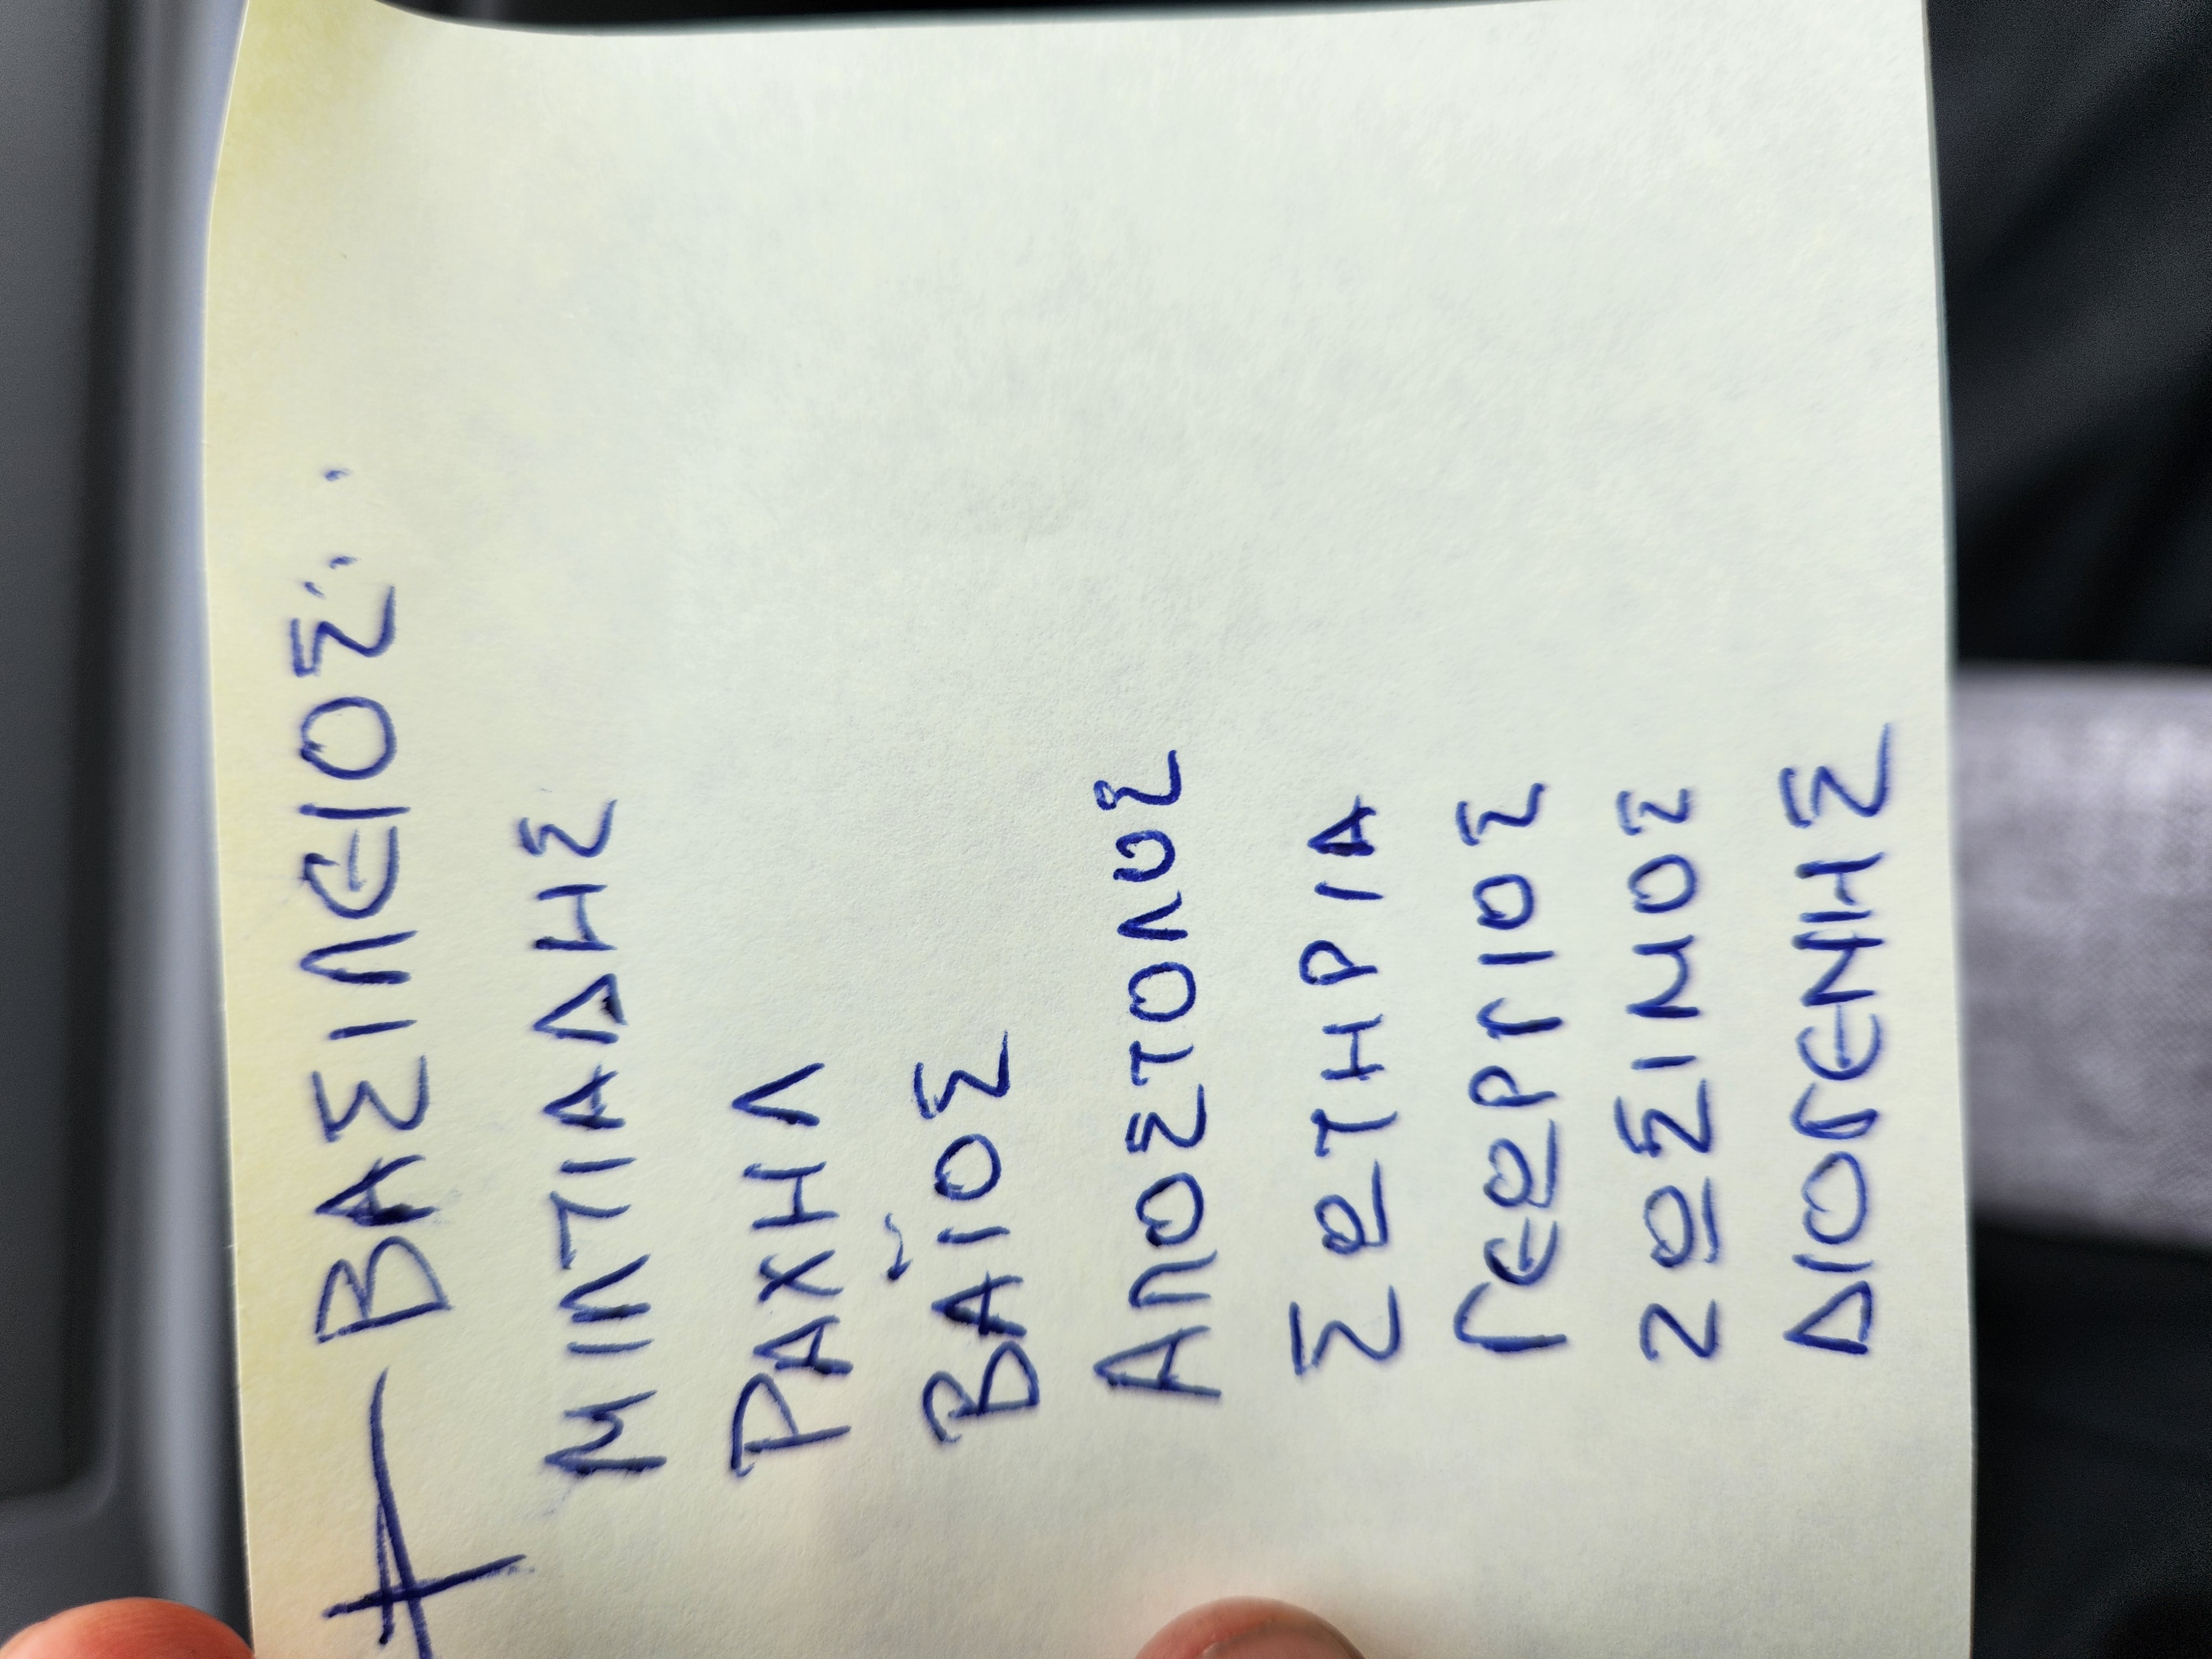 ΒΑΣΙΛΕΙΟΣ...
ΜΙΛΤΙΑΔΗΣ
ΡΑΧΗΛ
ΒΑΪΟΣ
ΑΠΟΣΤΟΛΟΣ
ΣΩΤΗΡΙΑ
ΓΕΩΡΓΙΟΣ
ΖΩΣΙΜΟΣ
ΔΙΟΓΕΝΗΣ